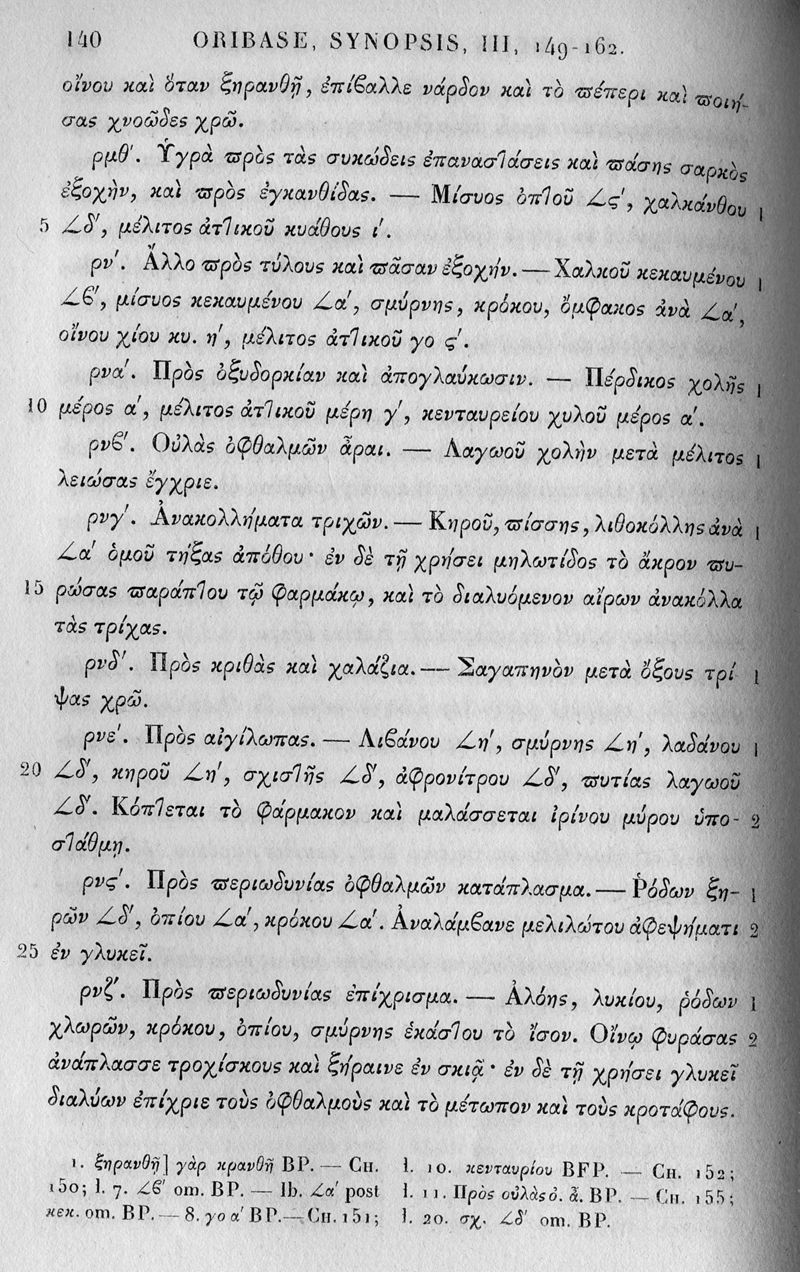 140 ORIBASE, SYNOPSIS, III, 149-162.
οἴνου καὶ ὅταν ξηρανθῇ, ἐπίβαλλε νάρδον καὶ τὸ πέπερι καὶ ποιή-
σας χνοῶδες χρῶ.
ρμθʹ. Ὑγρὰ πρὸς τὰς συκώδεις ἐπαναστάσεις καὶ πάσης σαρκὸς
ἐξοχὴν, καὶ πρὸς ἐγκανθίδας. — Μίσυος ὀπτοῦ ∠ϛʹ, χαλκάνθου 1
5 ∠δʹ, μέλιτος ἀττικοῦ κυάθους ιʹ.
ρνʹ. Ἄλλο πρὸς τύλους καὶ πᾶσαν ἐξοχήν. — Χαλκοῦ κεκαυμένου 1
∠βʹ, μίσυος κεκαυμένου ∠αʹ, σμύρνης, κρόκου, ὄμφακος ἀνὰ ∠αʹ,
οἴνου χίου κυ. ηʹ, μέλιτος ἀττικοῦ γο ϛʹ.
ρναʹ. Πρὸς ὀξυδορκίαν καὶ ἀπογλαύκωσιν. — Πέρδικος χολῆς 1
10 μέρος αʹ, μέλιτος ἀττικοῦ μέρη γʹ, κενταυρείου χυλοῦ μέρος αʹ.
ρνβʹ. Οὐλὰς ὀφθαλμῶν ἆραι. — Λαγωοῦ χολὴν μετὰ μέλιτος 1
λειώσας ἔγχριε.
ρνγʹ. Ἀνακολλήματα τριχῶν. — Κηροῦ, πίσσης, λιθοκόλλης ἀνὰ 1
∠αʹ ὁμοῦ τήξας ἀπόθου· ἐν δὲ τῇ χρήσει μηλωτίδος τὸ ἄκρον πυ-
15 ρώσας παράπτου τῷ φαρμάκῳ, καὶ τὸ διαλυόμενον αἴρων ἀνακόλλα
τὰς τρίχας.
ρνδʹ. Πρὸς κριθὰς καὶ χαλάζια. — Σαγαπηνὸν μετὰ ὄξους τρί 1
ψας χρῶ.
ρνεʹ. Πρὸς αἰγίλωπας. — Λιβάνου ∠ηʹ, σμύρνης ∠ηʹ, λαδάνου 1
20 ∠δʹ, κηροῦ ∠ηʹ, σχιστῆς ∠δʹ, ἀφρονίτρου ∠δʹ, πυτίας λαγωοῦ
∠δʹ. Κόπτεται τὸ φάρμακον καὶ μαλάσσεται ἰρίνου μύρου ὑπο- 2
στάθμῃ.
ρνϛʹ. Πρὸς περιωδυνίας ὀφθαλμῶν κατάπλασμα. — Ῥόδων ξη- 1
ρῶν ∠δʹ, ὀπίου ∠αʹ, κρόκου ∠αʹ. Ἀναλάμβανε μελιλώτου ἀφεψήματι 2
25 ἐν γλυκεῖ.
ρνζʹ. Πρὸς περιωδυνίας ἐπίχρισμα. — Ἀλόης, λυκίου, ῥόδων 1
χλωρῶν, κρόκου, ὀπίου, σμύρνης ἑκάστου τὸ ἴσον. Οἴνῳ φυράσας 2
ἀνάπλασσε τροχίσκους καὶ ξήραινε ἐν σκιᾷ· ἐν δὲ τῇ χρήσει γλυκεῖ
διαλύων ἐπίχριε τοὺς ὀφθαλμοὺς καὶ τὸ μέτωπον καὶ τοὺς κροτάφους.
1. ξηρανθῇ] γὰρ κρανθῇ BP. — CH.
150; l. 7. ∠βʹ om. BP. — Ib. ∠αʹ post
κεκ. om. BP. — 8. γο αʹ BP. — CH. 151;
l. 10. κενταυρίου BFP. — CH. 152;
l. 11. Πρὸς οὐλὰς ὀ. ἆ. BP. — CH. 155;
l. 20. σχ. ∠δʹ om. BP.